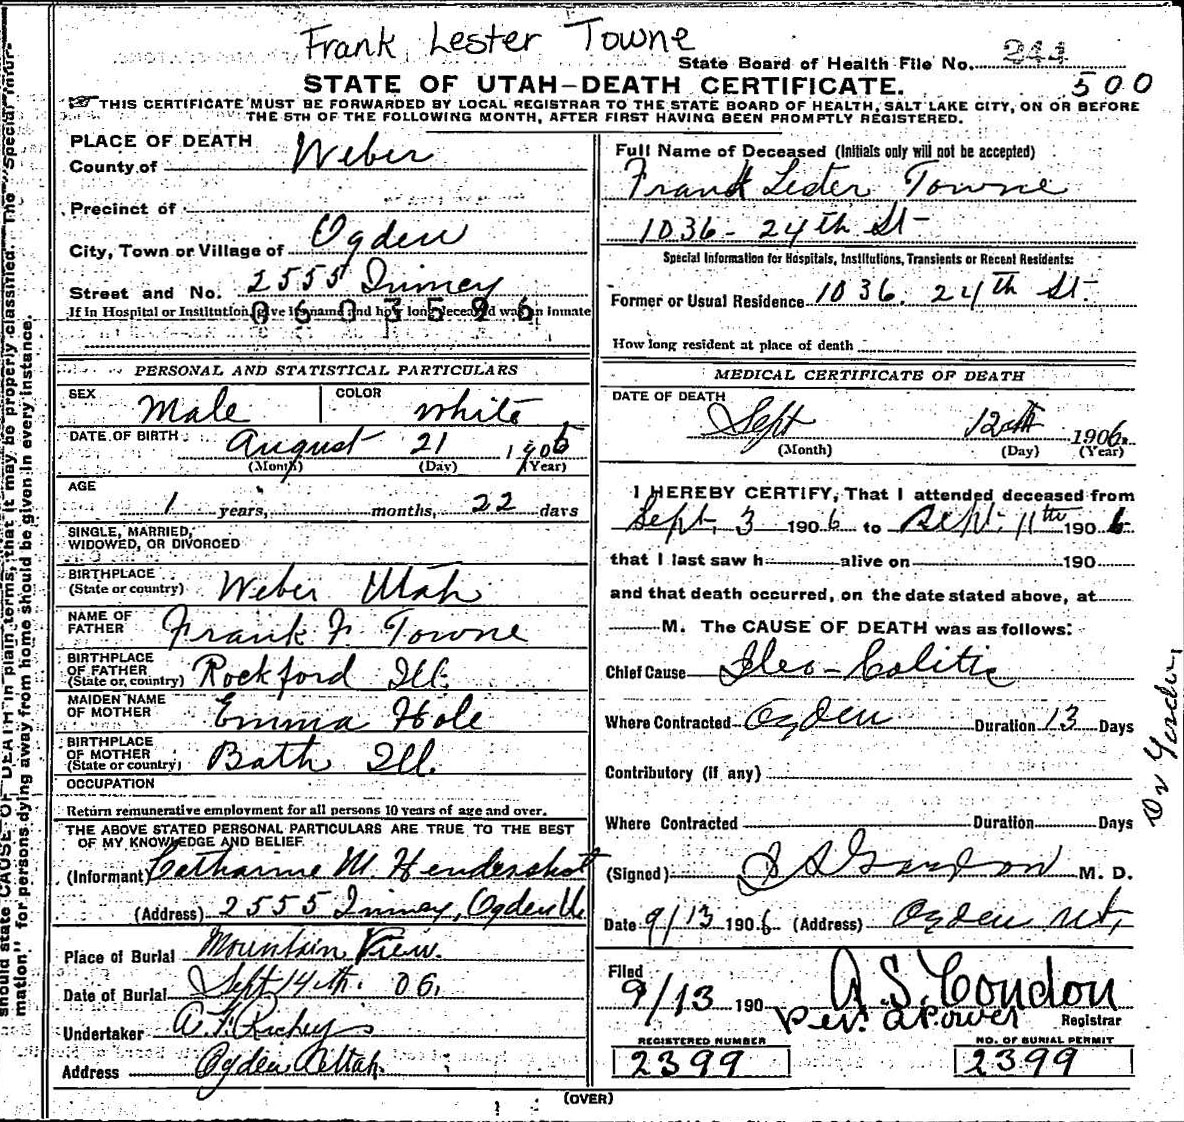 Frank Lester Towne
State Board of Health File No. 244
STATE OF UTAH—DEATH CERTIFICATE.
500
THIS CERTIFICATE MUST BE FORWARDED BY LOCAL REGISTRAR TO THE STATE BOARD OF HEALTH, SALT LAKE CITY, ON OR BEFORE
THE 5TH OF THE FOLLOWING MONTH, AFTER FIRST HAVING BEEN PROMPTLY REGISTERED.
PLACE OF DEATH
County of Weber
Precinct of
City, Town or Village of Ogden
Street and No. 2555
If in Hospital or Institution, give its name and how long deceased was an inmate
PERSONAL AND STATISTICAL PARTICULARS
SEX Male COLOR white
DATE OF BIRTH August 21 1905
(Month) (Day) (Year)
AGE
1 years, months, 22 days
SINGLE, MARRIED,
WIDOWED, OR DIVORCED
BIRTHPLACE
(State or country) Weber Utah
NAME OF
FATHER Frank F. Towne
BIRTHPLACE
OF FATHER
(State or country) Rockford Ill.
MAIDEN NAME
OF MOTHER Emma Hole
BIRTHPLACE
OF MOTHER
(State or country) Bath Ill.
OCCUPATION
Return remunerative employment for all persons 10 years of age and over.
THE ABOVE STATED PERSONAL PARTICULARS ARE TRUE TO THE BEST
OF MY KNOWLEDGE AND BELIEF
(Informant) Catharine M. Hendershot
(Address) 2555 Ogden
Place of Burial Mountain View.
Date of Burial Sept 14th. 06.
Undertaker
Address Ogden Utah.
Full Name of Deceased (Initials only will not be accepted)
Frank Lester Towne
1036 - 24th St
Special Information for Hospitals, Institutions, Transients or Recent Residents:
Former or Usual Residence 1036. 24th St.
How long resident at place of death
MEDICAL CERTIFICATE OF DEATH
DATE OF DEATH
Sept 12th 1906.
(Month) (Day) (Year)
I HEREBY CERTIFY, That I attended deceased from
Sept. 3 1906 to Sept. 11th 1906
that I last saw h alive on 190
and that death occurred, on the date stated above, at
M. The CAUSE OF DEATH was as follows:
Chief Cause Ileo-Colitis
Where Contracted Ogden Duration 13 Days
Contributory (if any)
Where Contracted Duration Days
(Signed) M. D.
Date 9/13 1906 (Address) Ogden Ut,
Filed
9/13 190 A. S. Condon
Registrar
REGISTERED NUMBER
2399
NO. OF BURIAL PERMIT
2399
(OVER)
should state CAUSE OF DEATH in plain terms, that it may be properly classified. The "Special Infor-
mation" for persons dying away from home should be given in every instance.